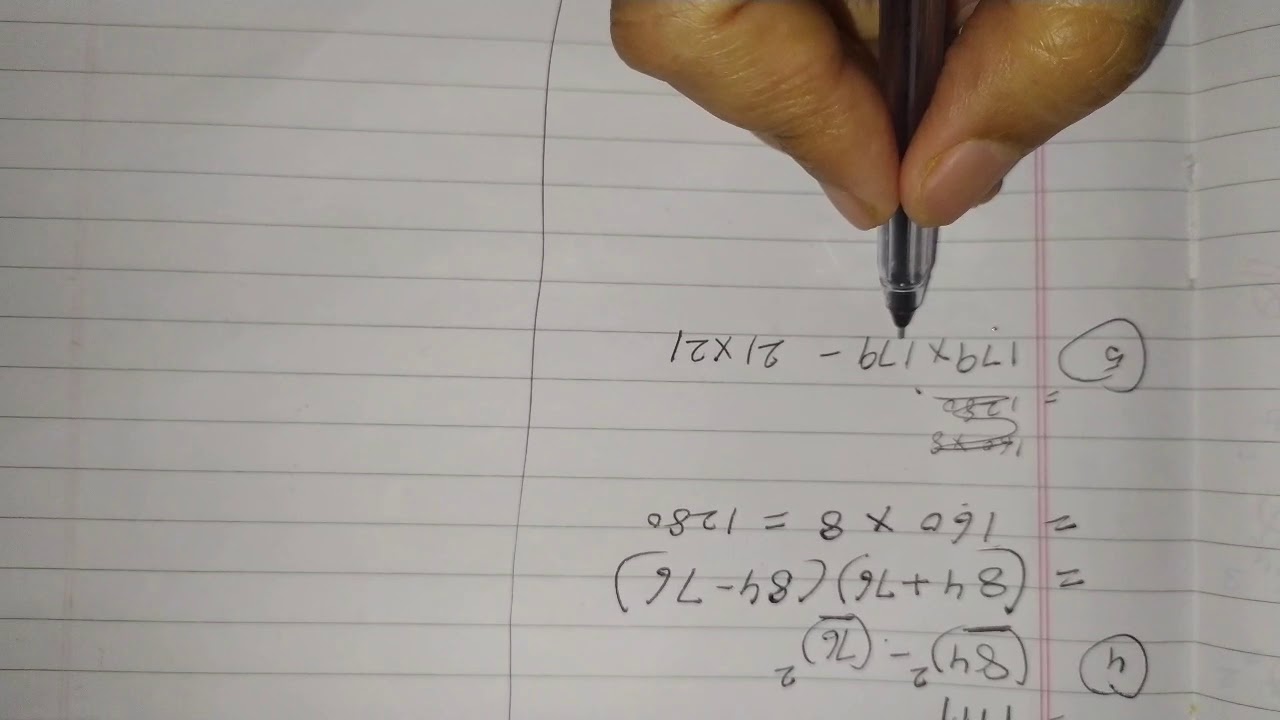 ④ (84)² - (76)²
= (84+76)(84-76)
= 160 × 8 = 1280
160 × 8
= 1280
⑤ 179×179 - 21×21